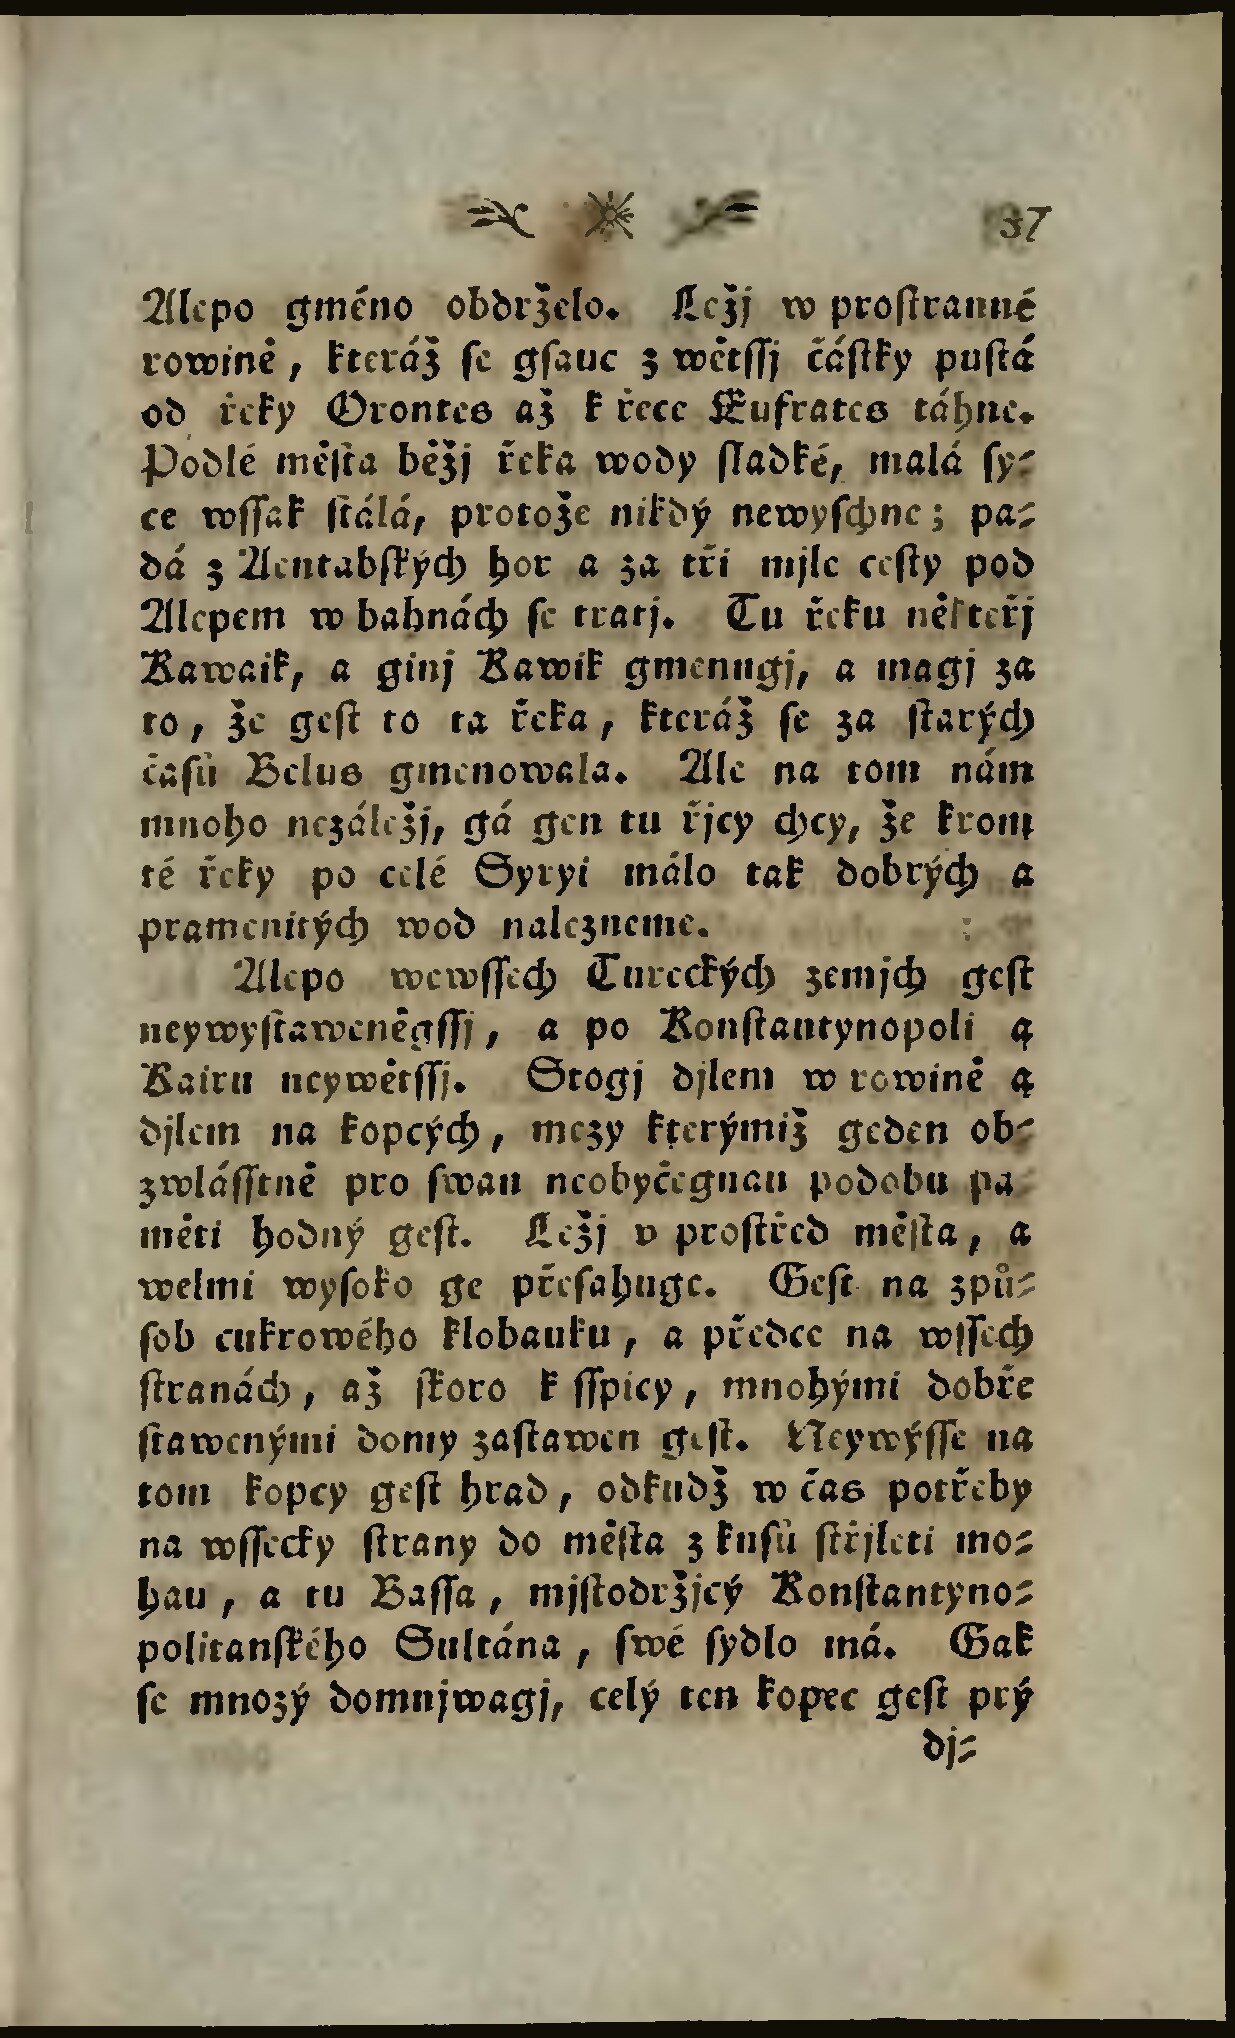 37
Alepo gméno obdrželo. Ležj w prostranné
rowině, kteráž se gsauc z wětssj částky pustá
od řeky Orontes až k řece Eufrates táhne.
Podlé města běžj řeka wody sladké, malá sy-
ce wssak stálá, protože nikdý newyschne; pa-
dá z Aentabských hor a za tři mjle cesty pod
Alepem w bahnách se tratj. Tu řeku někteřj
Kawaik, a ginj Kawik gmenugj, a magj za
to, že gest to ta řeka, kteráž se za starých
časů Belus gmenowala. Ale na tom nám
mnoho nezáležj, gá gen tu řjcy chcy, že krom
té řeky po celé Syryi málo tak dobrých a
pramenitých wod nalezneme.
Alepo wewssech Tureckých zemjch gest
neywystaweněgssj, a po Konstantynopoli a
Kairu neywětssj. Stogj djlem w rowině a
djlem na kopcých, mezy kterýmiž geden ob-
zwlásstně pro swau neobyčegnau podobu pa-
měti hodný gest. Ležj v prostřed města, a
welmi wysoko ge přesahuge. Gest na způ-
sob cukrowého klobauku, a předce na wssech
stranách, až skoro k sspicy, mnohými dobře
stawenými domy zastawen gest. Neywýsse na
tom kopcy gest hrad, odkudž w čas potřeby
na wssecky strany do města z kusů střjleti mo-
hau, a tu Bassa, mjstodržjcý Konstantyno-
politanského Sultána, swé sydlo má. Gak
se mnozý domnjwagj, celý ten kopec gest prý
dj-